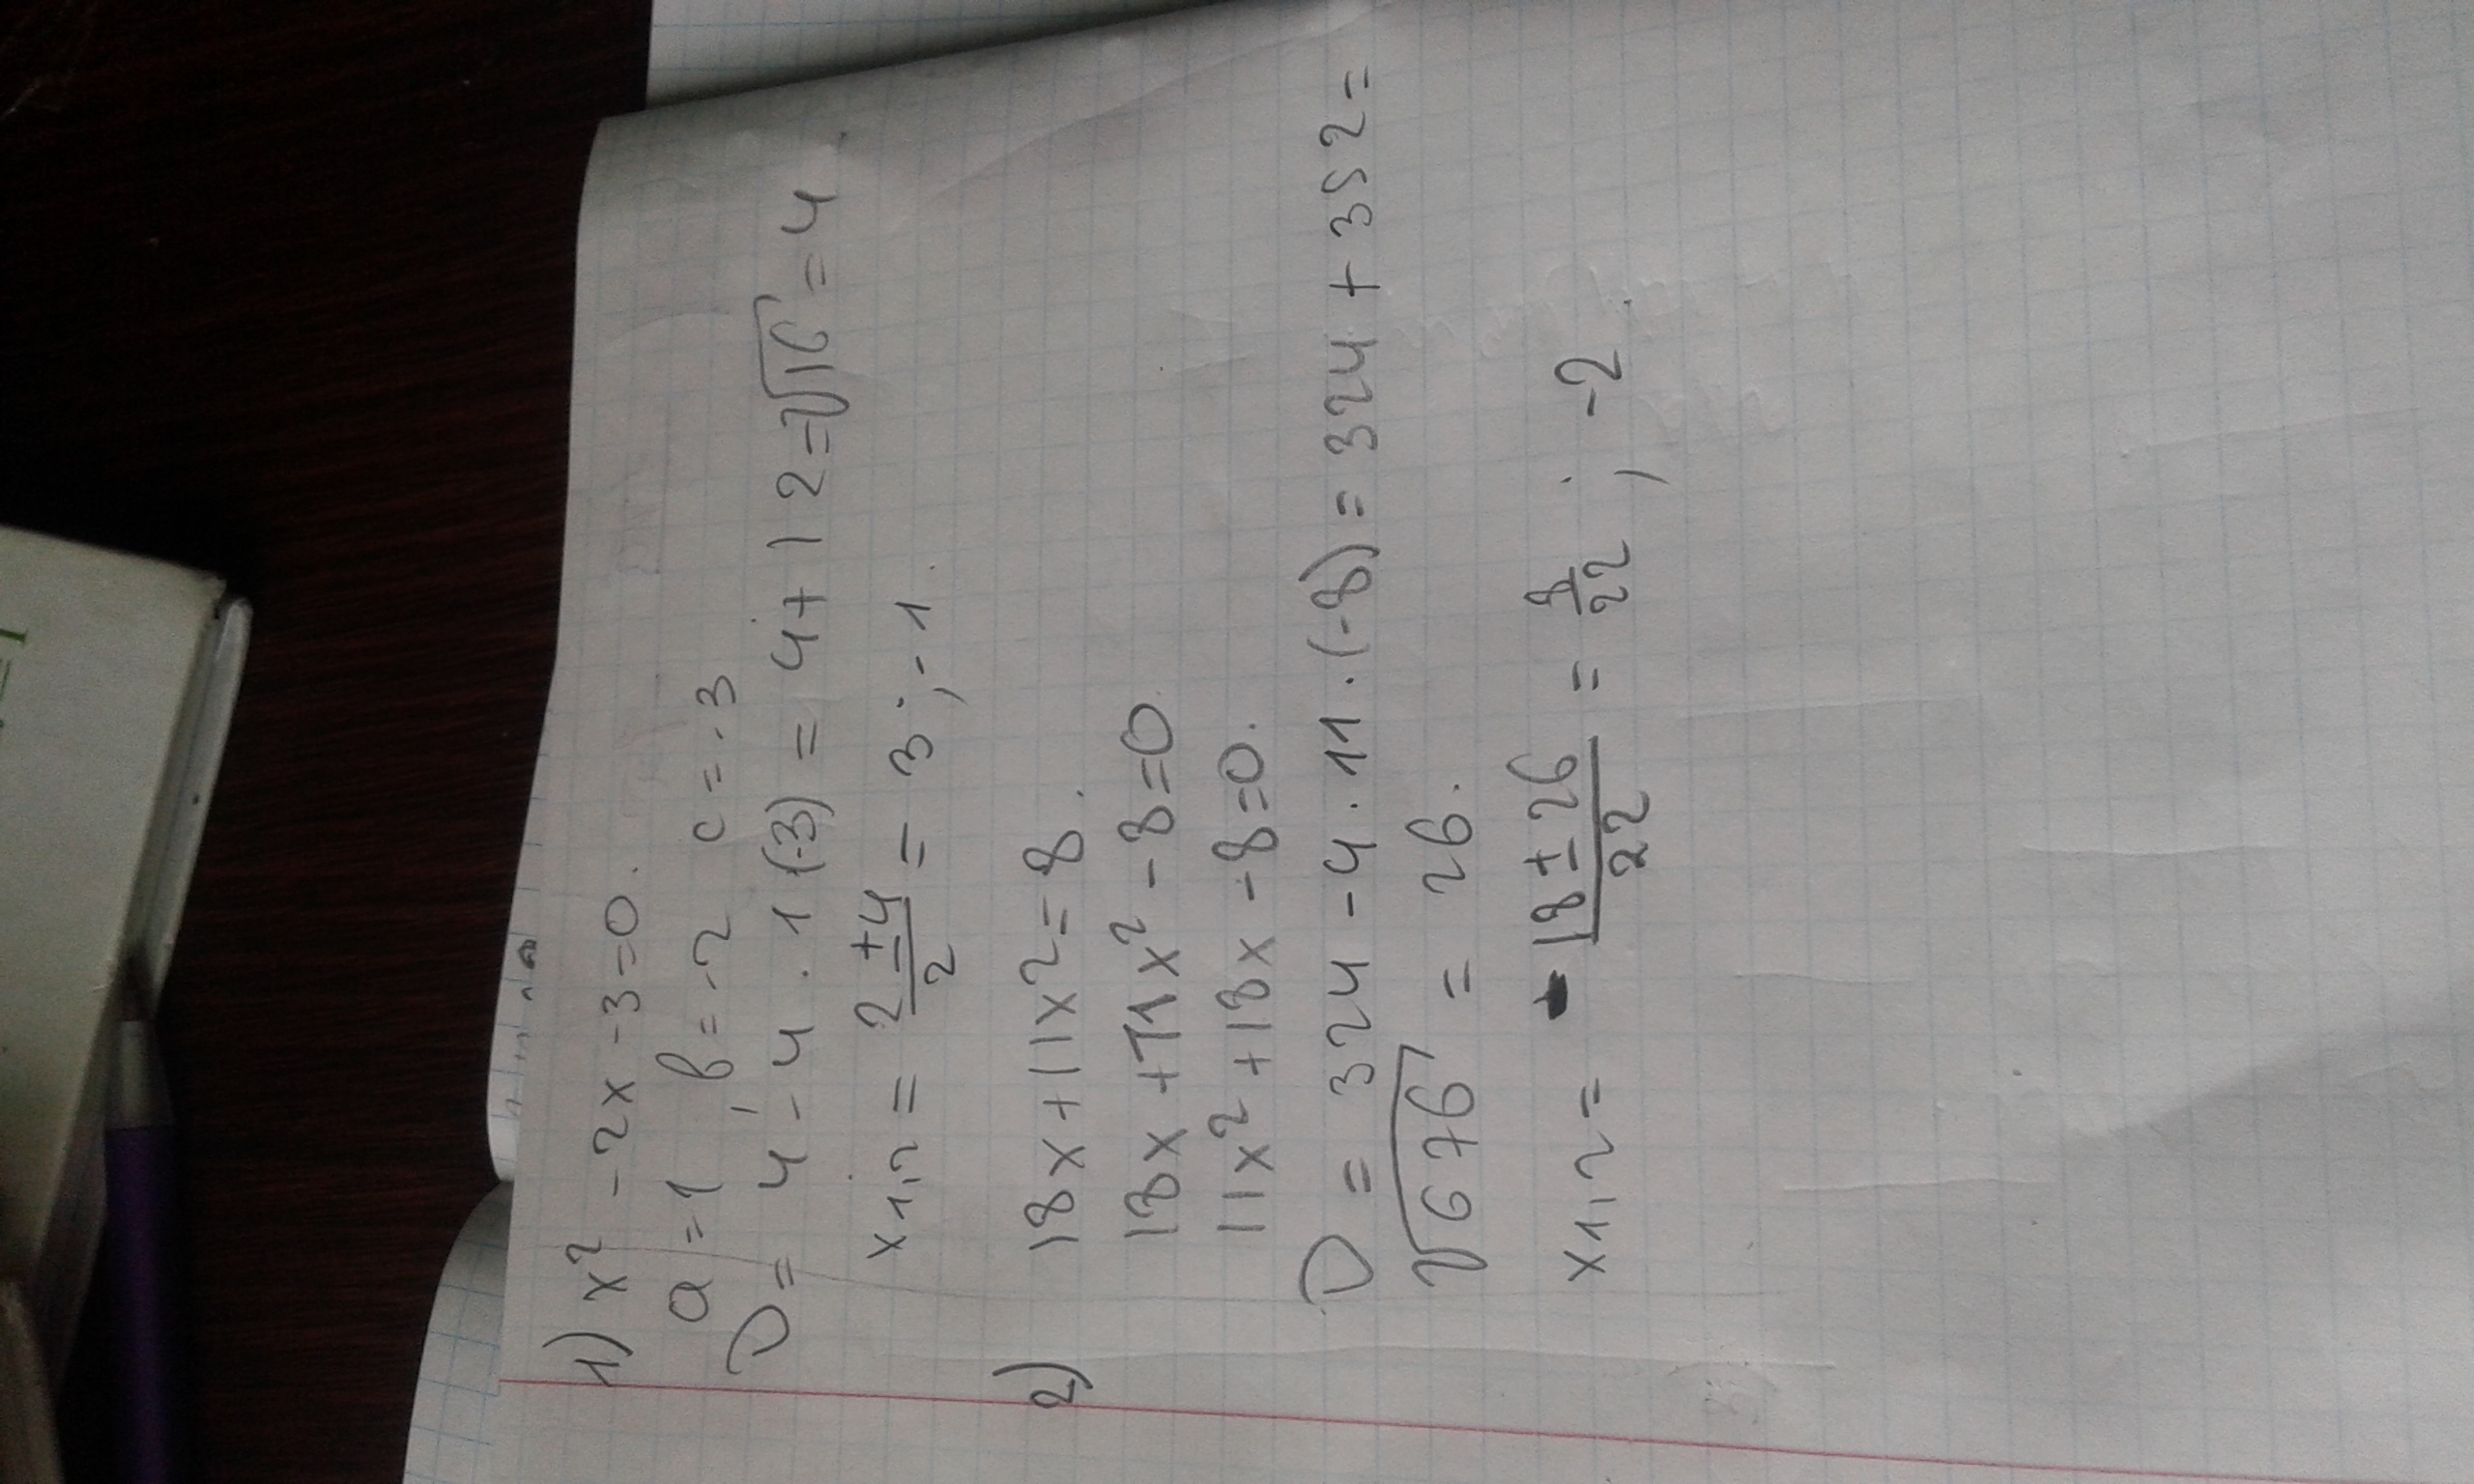 1) x² - 2x - 3 = 0.
a = 1, в = -2 c = -3
D = 4 - 4 · 1(-3) = 4 + 12 = √16 = 4
x1,2 = (2 ± 4)/2 = 3; -1.
2) 18x + 11x² = 8.
18x + 11x² - 8 = 0.
11x² + 18x - 8 = 0.
D = 324 - 4 · 11 · (-8) = 324 + 352 =
√676 = 26.
x1,2 = -(18 ± 26)/22 = 8/22; -2